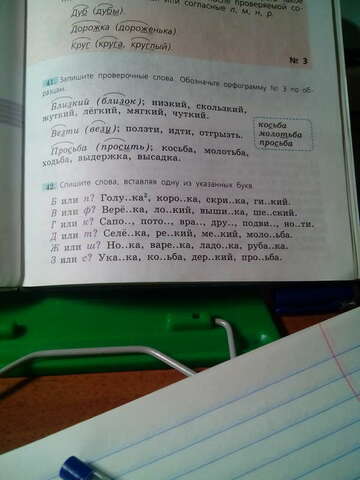 или согласные л, м, н, р.
Дуб (дубы).
Дорожка (дороженька).
Круг (круга, круглый).
№ 3
41. Запишите проверочные слова. Обозначьте орфограмму № 3 по об-
разцам.
Близкий (близок); низкий, скользкий,
жуткий, лёгкий, мягкий, чуткий.
Везти (везу); ползти, идти, отгрызть.
Просьба (просить); косьба, молотьба,
ходьба, выдержка, высадка.
косьба
молотьба
просьба
42. Спишите слова, вставляя одну из указанных букв.
Б или п? Голу..ка², коро..ка, скри..ка, ги..кий.
В или ф? Верё..ка, ло..кий, выши..ка, ше..ский.
Г или к? Сапо.., пото.., вра.., дру.., подви.., но..ти.
Д или т? Селё..ка, ре..кий, ме..кий, моло..ьба.
Ж или ш? Но..ка, варе..ка, ладо..ка, руба..ка.
З или с? Ука..ка, ко..ьба, дер..кий, про..ьба.